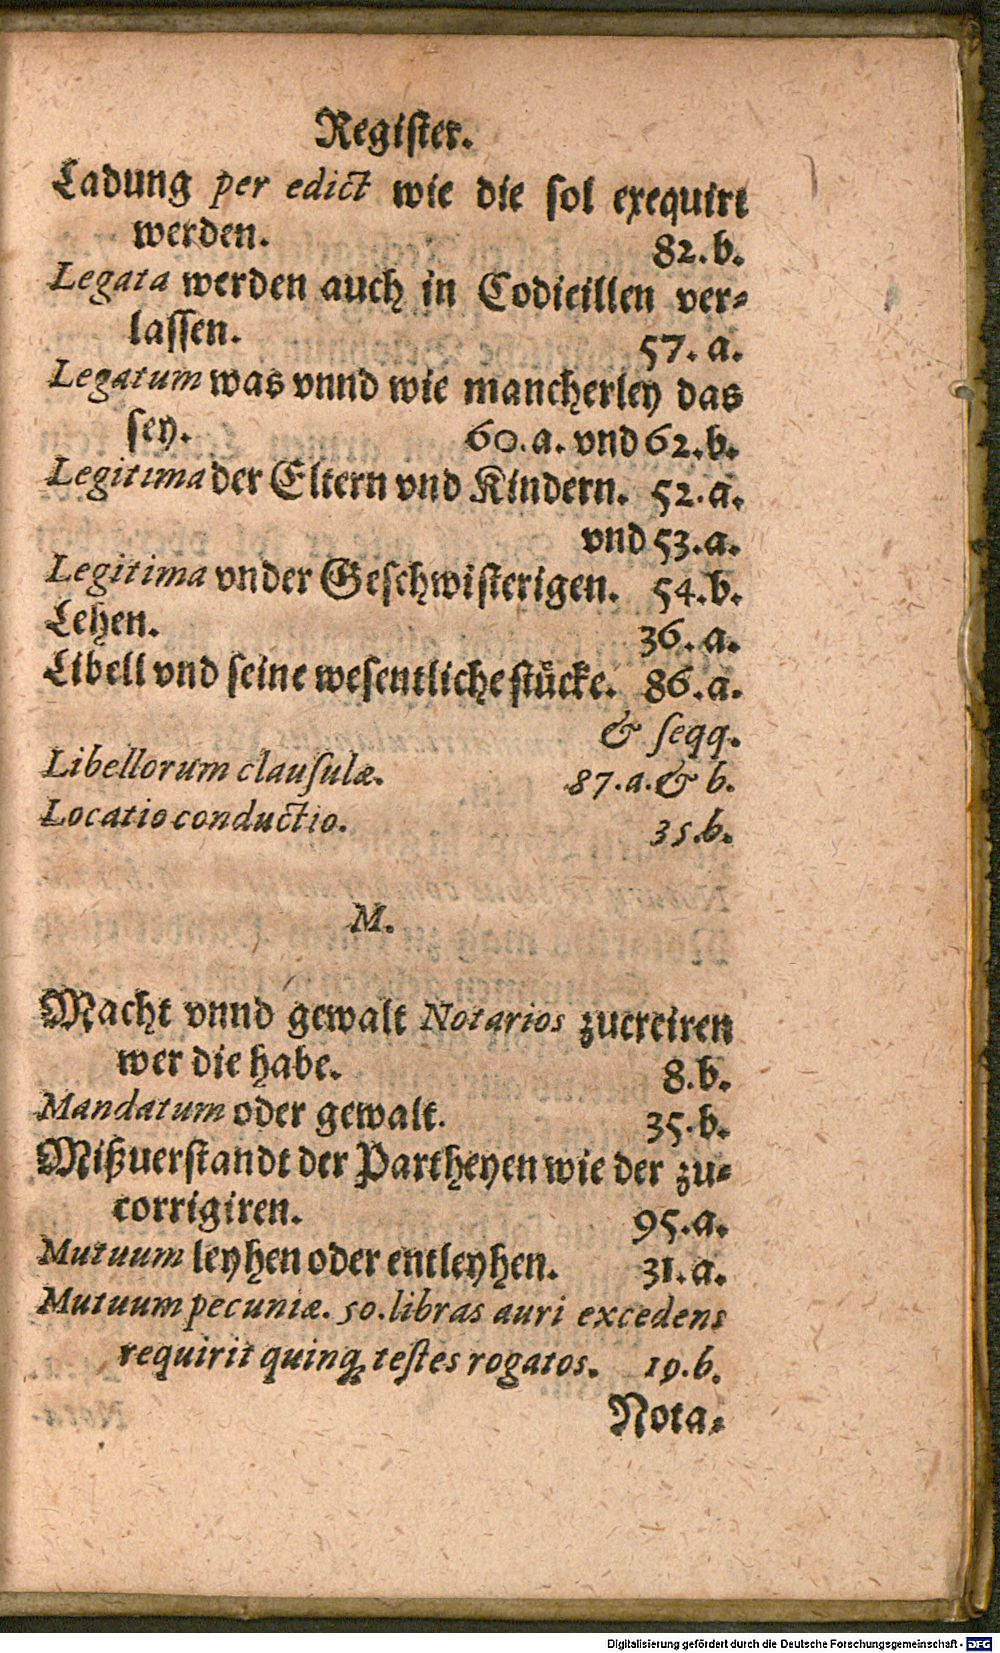 Register.
Ladung per edict wie die sol exequirt
werden. 82.b.
Legata werden auch in Codicillen ver-
lassen. 57. a.
Legatum was vnnd wie mancherley das
sey. 60.a. vnd 62.b.
Legitima der Eltern vnd Kindern. 52.a.
vnd 53.a.
Legitima vnder Geschwisterigen. 54.b.
Lehen. 36.a.
Libell vnd seine wesentliche stücke. 86.a.
& seqq.
Libellorum clausulæ. 87.a.& b.
Locatio conductio. 35.b.
M.
Macht vnnd gewalt Notarios zucreiren
wer die habe. 8.b.
Mandatum oder gewalt. 35.b.
Mißuerstandt der Partheyen wie der zu-
corrigiren. 95.a.
Mutuum leyhen oder entleyhen. 31.a.
Mutuum pecuniæ. 50. libras auri excedens
requirit quinq; testes rogatos. 19.b.
Nota-
Digitalisierung gefördert durch die Deutsche Forschungsgemeinschaft - DFG